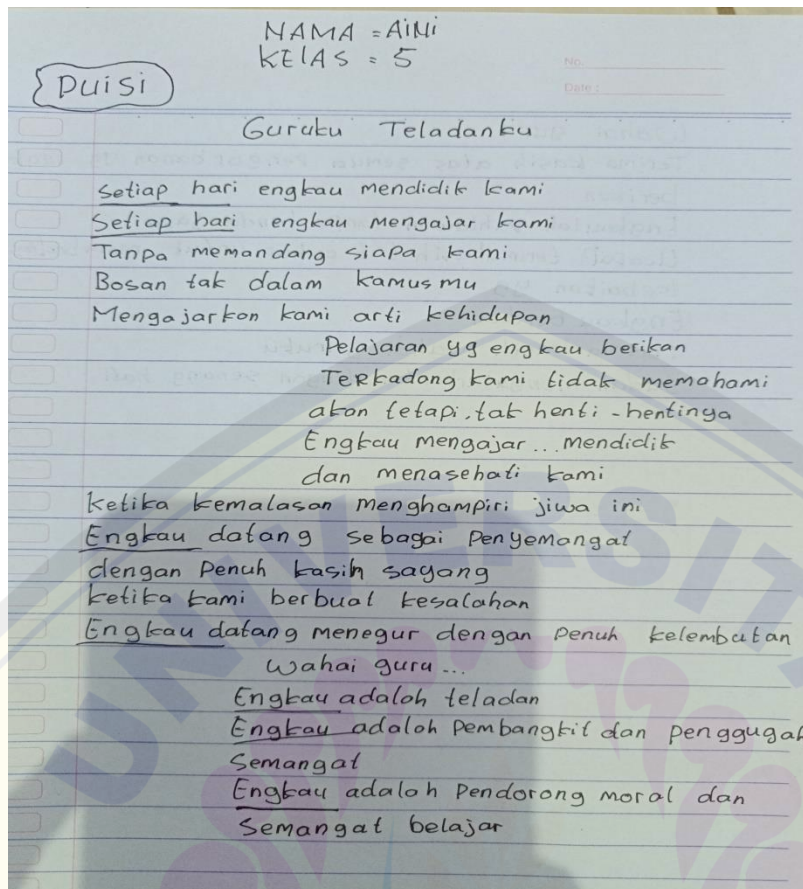 NAMA = AiNi
KElAS = 5
No.
Date :
Puisi
Guruku Teladanku
Setiap hari engkau mendidik kami
Setiap hari engkau mengajar kami
Tanpa memandang siapa kami
Bosan tak dalam kamus mu
Mengajarkan kami arti kehidupan
Pelajaran yg engkau berikan
Terkadang kami tidak memahami
akan tetapi, tak henti - hentinya
Engkau mengajar... mendidik
dan menasehati kami
Ketika kemalasan menghampiri jiwa ini
Engkau datang sebagai Penyemangat
dengan Penuh kasih sayang
ketika kami berbual kesalahan
Engkau datang menegur dengan Penuh kelembutan
Wahai guru...
Engkau adalah teladan
Engkau adalah Pembangkit dan penggugah
Semangat
Engkau adalah Pendorong moral dan
Semangat belajar
UNIVERSITA